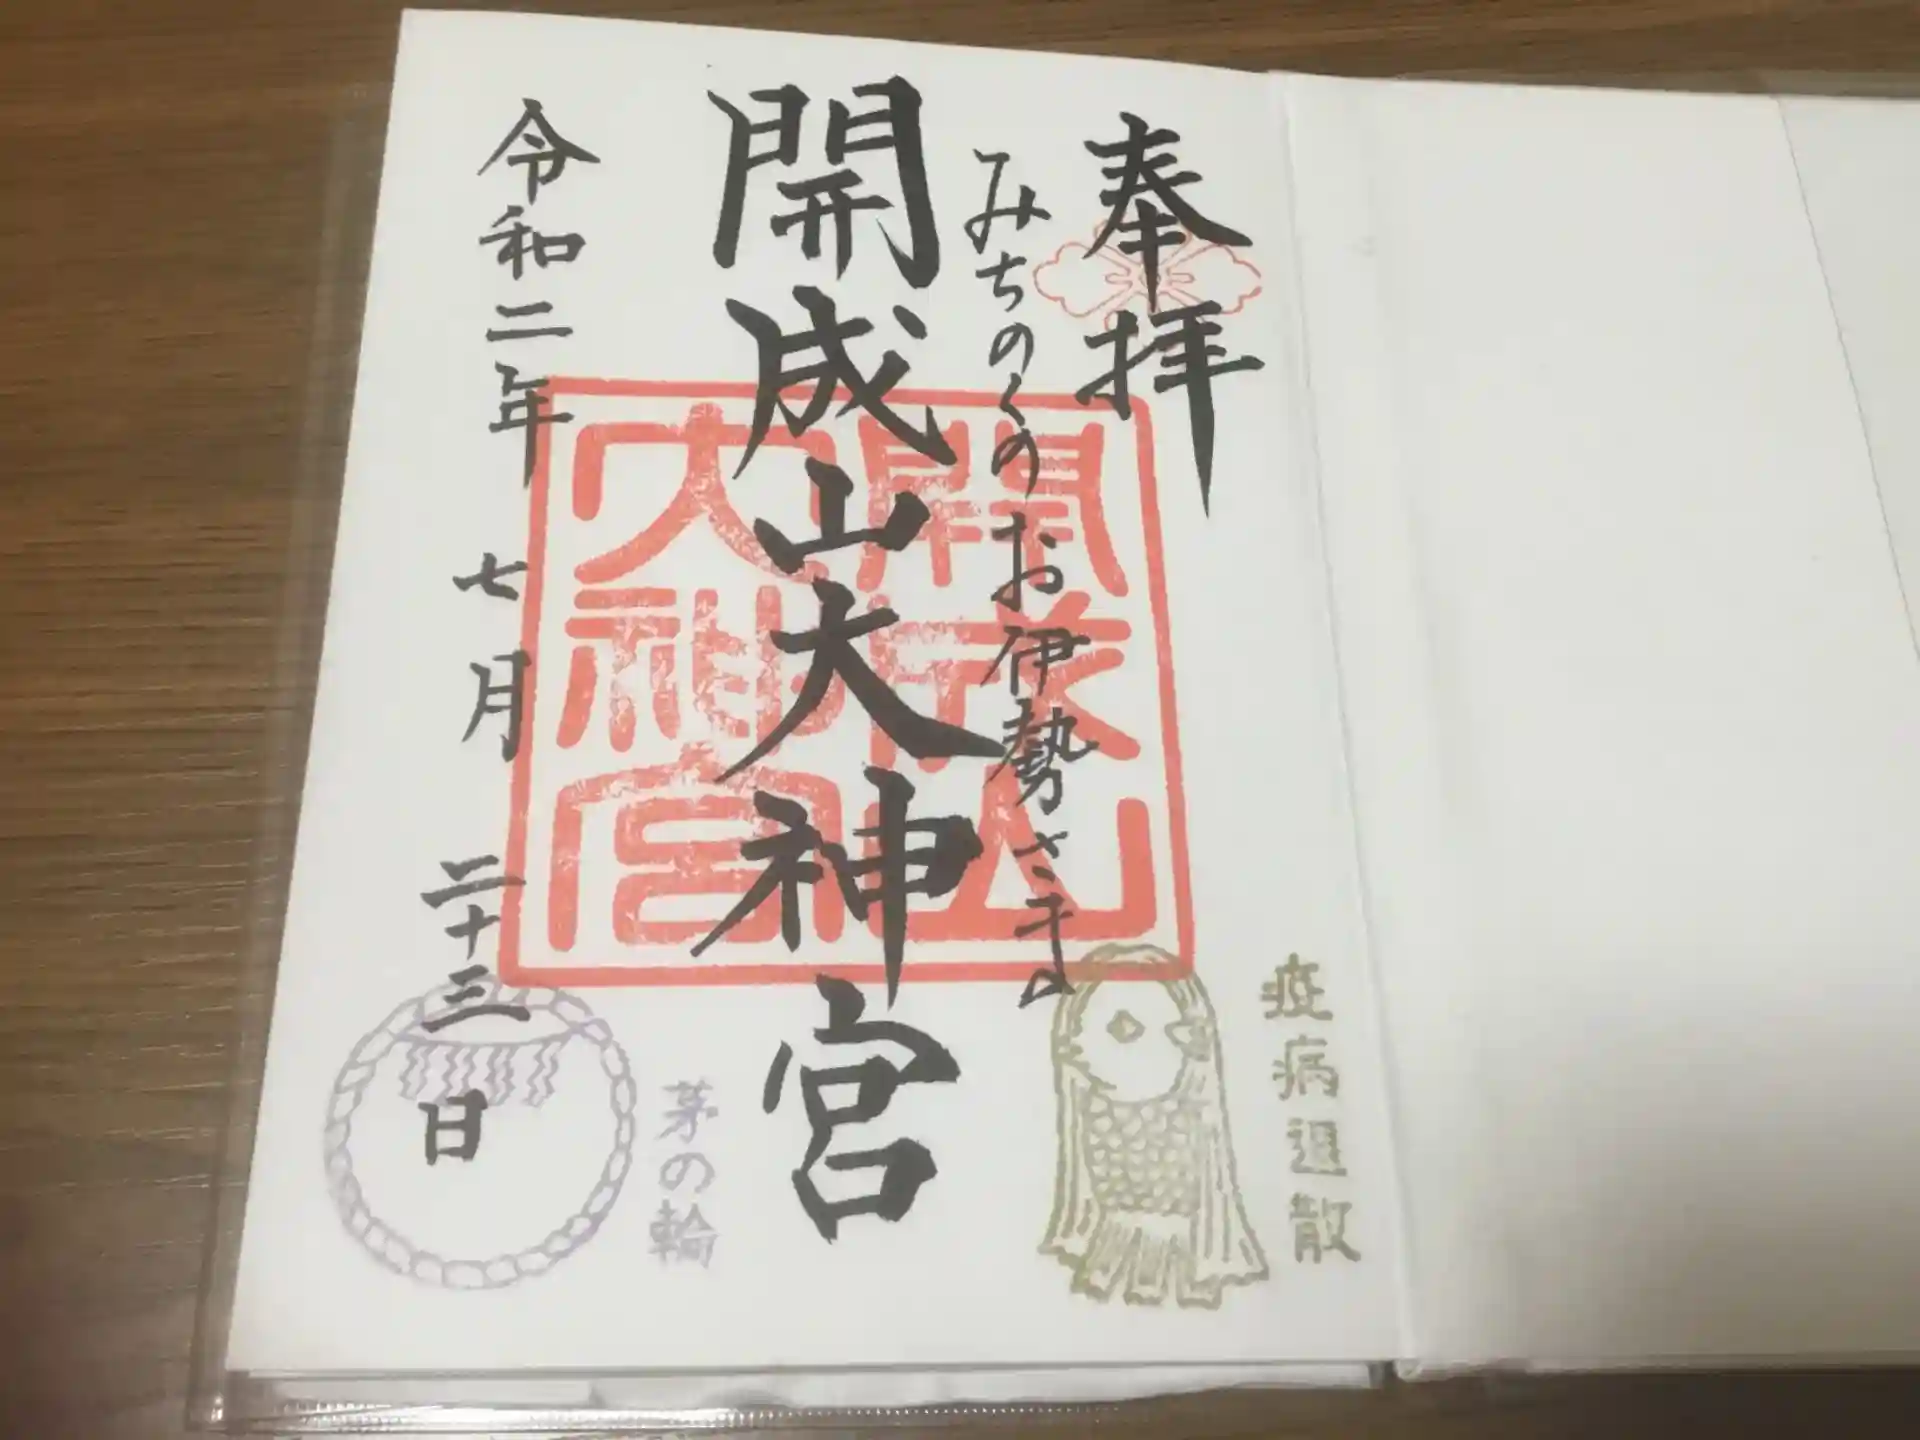 奉拝
みちのくのお伊勢さま
開成山大神宮
令和二年 七月 二十三日
開成山
大神宮
疫病退散
茅の輪